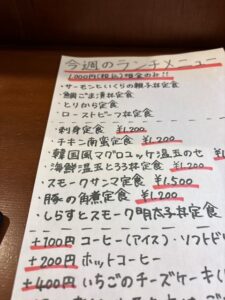 今週のランチメニュー
1,000円(税込)現金のみ!!
・サーモンといくらの親子丼定食
・鯛ごま漬丼定食
・とりから定食
・ローストビーフ丼定食
・刺身定食 ¥1,200
・チキン南蛮定食 ¥1,200
・韓国風マグロユッケ温玉のせ ¥1
・海鮮温玉とろろ丼定食 ¥1,200
・スモークサンマ定食 ¥1,500
・豚の角煮定食 ¥1,200
・しらすとスモーク明太子丼定食
+100円 コーヒー(アイス)・ソフトド
+200円 ホットコーヒー
+400円 いちごのチーズケーキ(